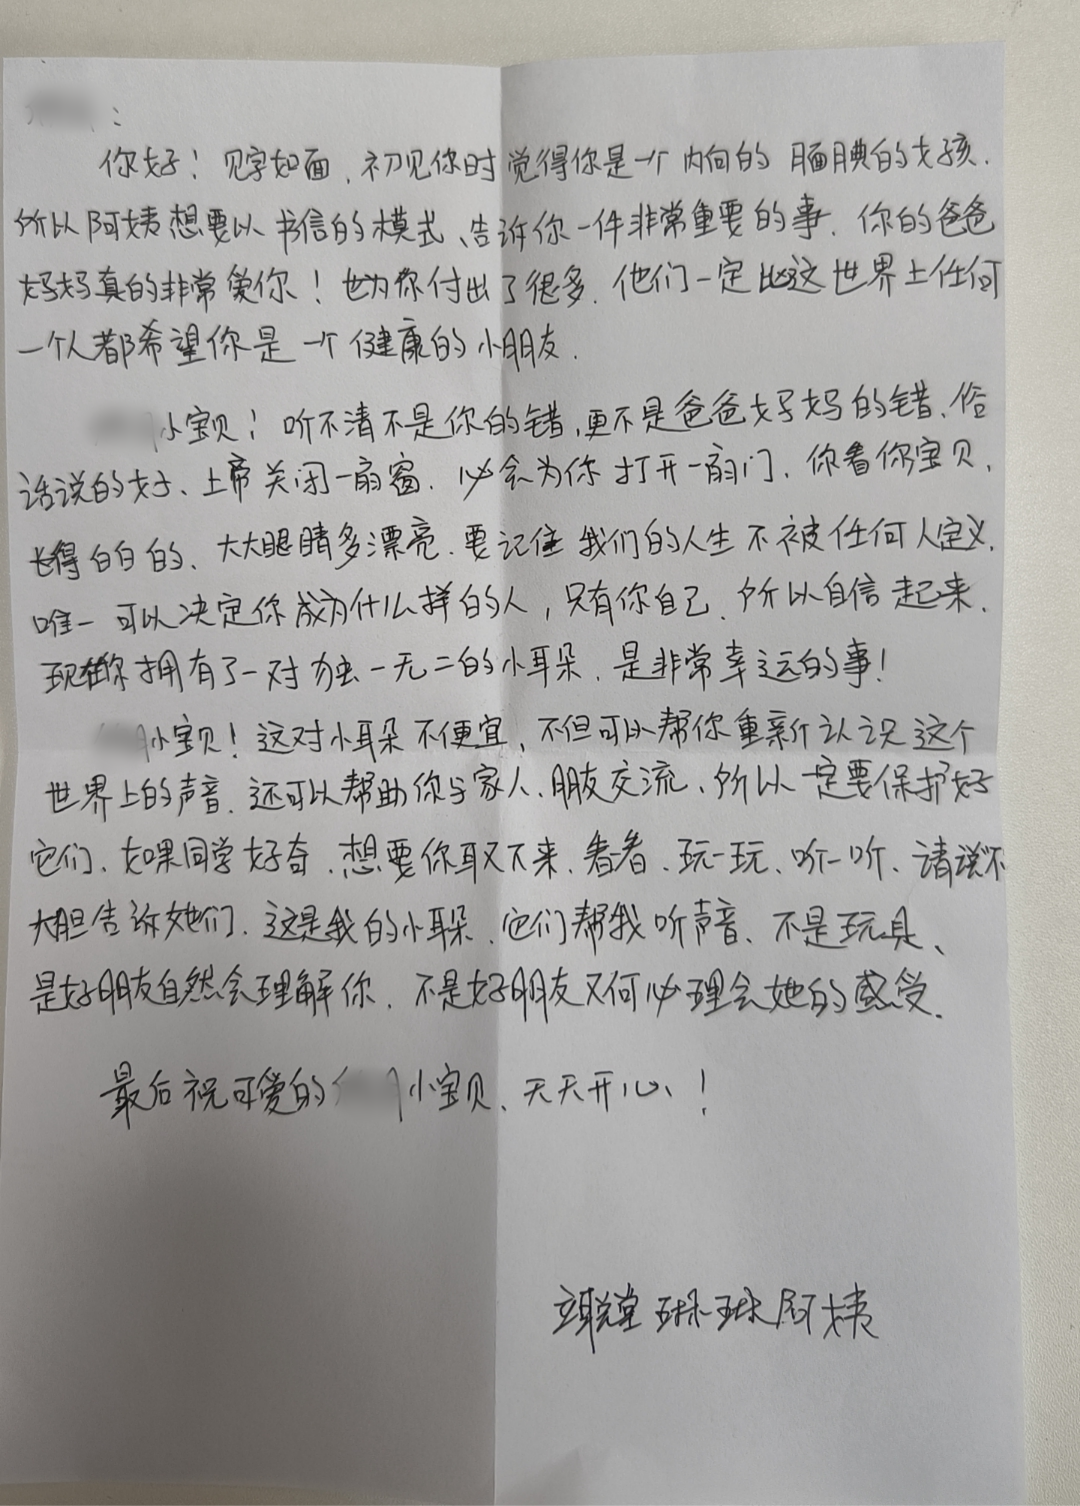 :
你好！见字如面，初见你时觉得你是一个内向的腼腆的女孩.
所以阿姨想要以书信的模式、告诉你一件非常重要的事.你的爸爸
妈妈真的非常爱你！也为你付出了很多.他们一定比这世界上任何
一个人都希望你是一个健康的小朋友.
小宝贝！听不清不是你的错,更不是爸爸妈妈的错、俗
话说的好、上帝关闭一扇窗.必会为你打开一扇门.你看你宝贝、
长得白白的、大大眼睛多漂亮.要记住我们的人生不被任何人定义.
唯一可以决定你成为什么样的人，只有你自己.所以自信起来.
现在你拥有了一对独一无二的小耳朵.是非常幸运的事！
小宝贝！这对小耳朵不便宜、不但可以帮你重新认识这个
世界上的声音.还可以帮助你与家人、朋友交流、所以一定要保护好
它们.如果同学好奇.想要你取下来.看看、玩一玩、听一听、请说不
大胆告诉她们.这是我的小耳朵.它们帮我听声音、不是玩具、
是好朋友自然会理解你.不是好朋友又何必理会她的感受.
最后祝可爱的 小宝贝、天天开心！
琳琳阿姨